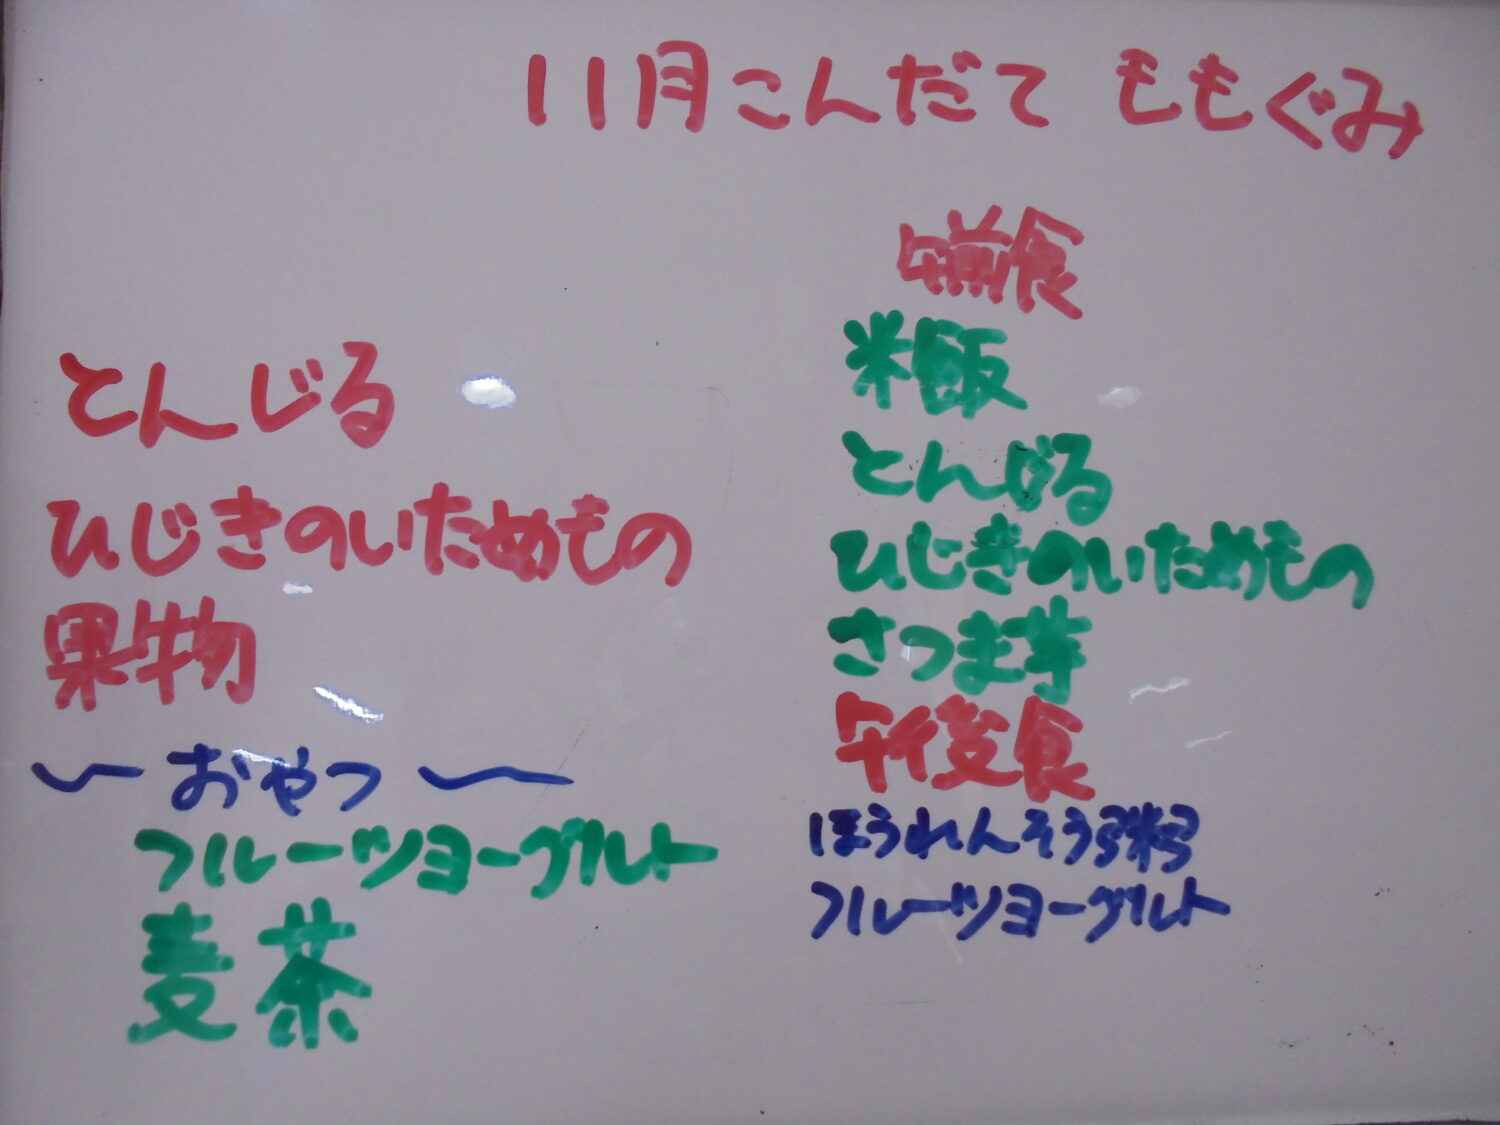 11月こんだて ももぐみ
とんじる
ひじきのいためもの
果物
〜おやつ〜
フルーツヨーグルト
麦茶
午前食
米飯
とんじる
ひじきのいためもの
さつま芋
午後食
ほうれんそう粥
フルーツヨーグルト